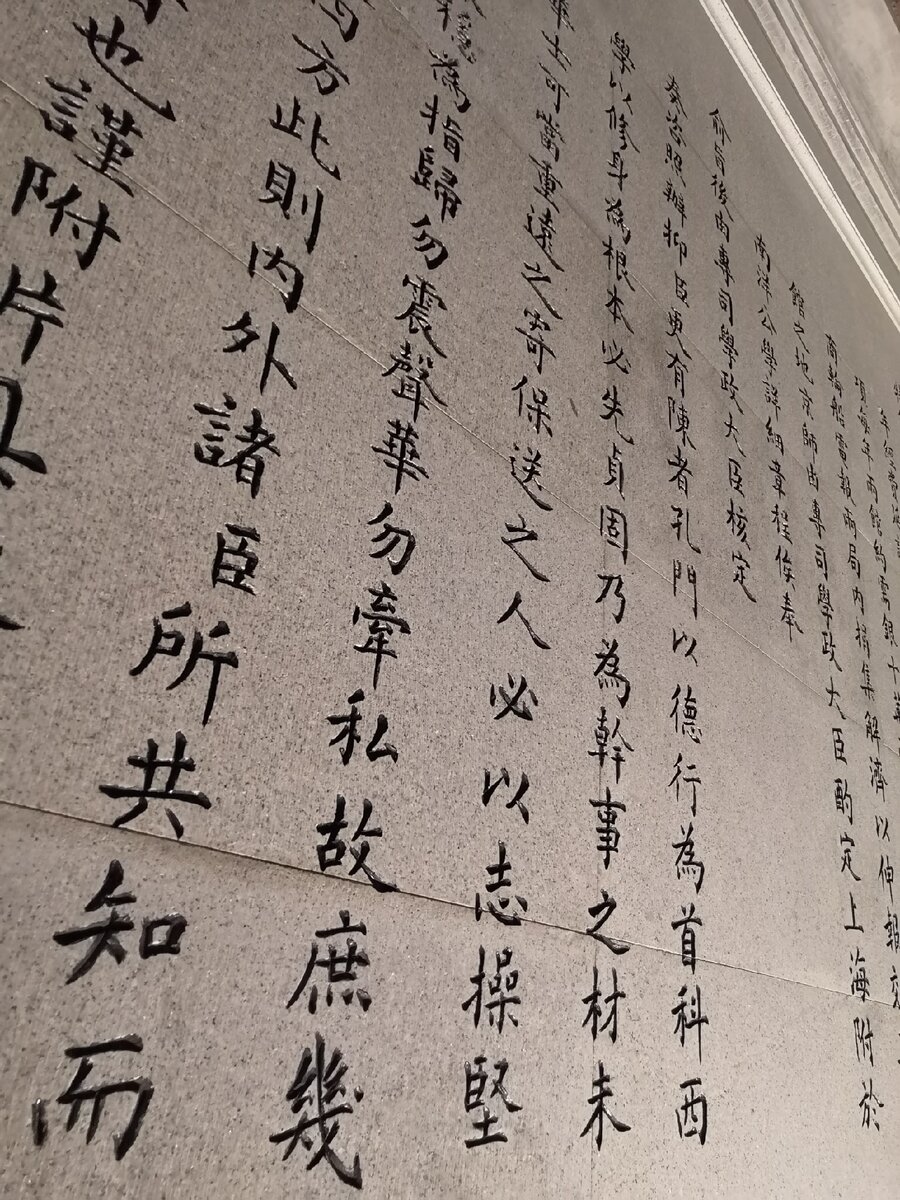 年經費
項每年兩館約需銀十萬
商輪船電報兩局內捐集解濟以伸報
館之地京師由專司學政大臣酌定上海附於
南洋公學詳細章程俟奉
俞旨後由專司學政大臣核定
奏咨照辦抑臣更有陳者孔門以德行為首科西
學以修身為根本必先貞固乃為幹事之材未
士可當重遠之寄保送之人必以志操堅
為指歸勿震聲華勿牽私故庶幾
方此則內外諸臣所共知而
也謹附片